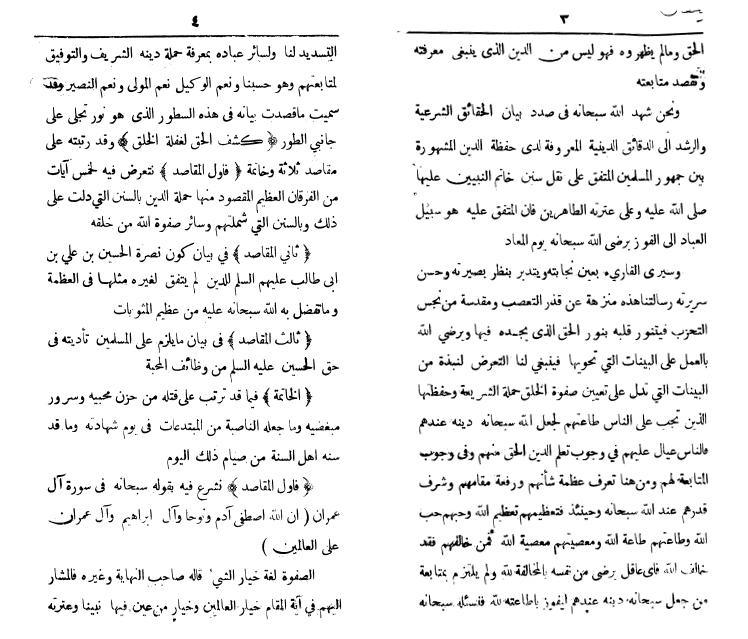 ٣
الحق ومالم يظهروه فهو ليس من الدين الذى ينبغى معرفته
وتقصد متابعته
ونحن شهد الله سبحانه فى صدد بيان الحقائق الشرعية
والرشد الى الدقائق الدينية المعروفة لدى حفظة الدين المشهورة
بين جمهور المسلمين المتفق على نقل سنن خاتم النبيين عليها
صلى الله عليه وعلى عترته الطاهرين فان المتفق عليه هو سبيل
العباد الى الفوز برضى الله سبحانه يوم المعاد
وسيرى القارىء بعين نجابته ويتدبر بنظر بصيرته وحسن
سريرته رسالتنا هذه منزهة عن قذر التعصب ومقدسة من نجس
التحزب فيتنور قلبه بنور الحق الذى يجده فيها ويرضي الله
بالعمل على البينات التي تحويها فينبغي لنا التعرض لنبذة من
البينات التي تدل على تعيين صفوة الخلق حملة الشريعة وحفظها
الذين تجب على الناس طاعتهم لجعل الله سبحانه دينه عندهم
فالناس عيال عليهم في وجوب تعلم الدين الحق منهم وفى وجوب
المتابعة لهم ومن هنا تعرف عظمة شأنهم ورفعة مقامهم وشرف
قدرهم عند الله سبحانه وحينئذ فتعظيمهم تعظيم الله وحبهم حب
الله وطاعتهم طاعة الله ومعصيتهم معصية الله فمن خالفهم فقد
خالف الله فاى عاقل يرضى من نفسه بالمخالفة لله ولم يلتزم بمتابعة
من جعل سبحانه دينه عندهم ايفوز باطاعته لله فنسئله سبحانه
٤
التسديد لنا ولسائر عباده بمعرفة حملة دينه الشريف والتوفيق
لمتابعتهم وهو حسبنا ونعم الوكيل نعم المولى ونعم النصير وقد
سميت ماقصدت بيانه فى هذه السطور الذى هو نور تجلى على
جانبي الطور ﴿كشف الحق لغفلة الخلق﴾ وقد رتبته على
مقاصد ثلاثة وخاتمة ﴿فاول المقاصد﴾ نتعرض فيه لخمس آيات
من الفرقان العظيم المقصود منها حملة الدين بالسنن التي دلت على
ذلك وبالسنن التي شملتهم وسائر صفوة الله من خلقه
﴿ثاني المقاصد﴾ في بيان كون نصرة الحسين بن علي بن
ابى طالب عليهم السلم للدين لم يتفق لغيره مثلها فى العظمة
وماتفضل به الله سبحانه عليه من عظيم المثوبات
﴿ثالث المقاصد﴾ فى بيان مايلزم على المسلمين تأديته فى
حق الحسين عليه السلم من وظائف المحبة
﴿الخاتمة﴾ فيما قد ترتب على قتله من حزن محبيه وسرور
مبغضيه وما جعله الناصبة من المبتدعات فى يوم شهادته وما قد
سنه اهل السنة من صيام ذلك اليوم
﴿فاول المقاصد﴾ نشرع فيه بقوله سبحانه فى سورة آل
عمران ( ان الله اصطفى آدم ونوحا وآل ابراهيم وآل عمران
على العالمين )
الصفوة لغة خيار الشي ً قاله صاحب النهاية وغيره فالمشار
اليهم في آية المقام خيار العالمين وخيار من عين فيها نبينا وعترته